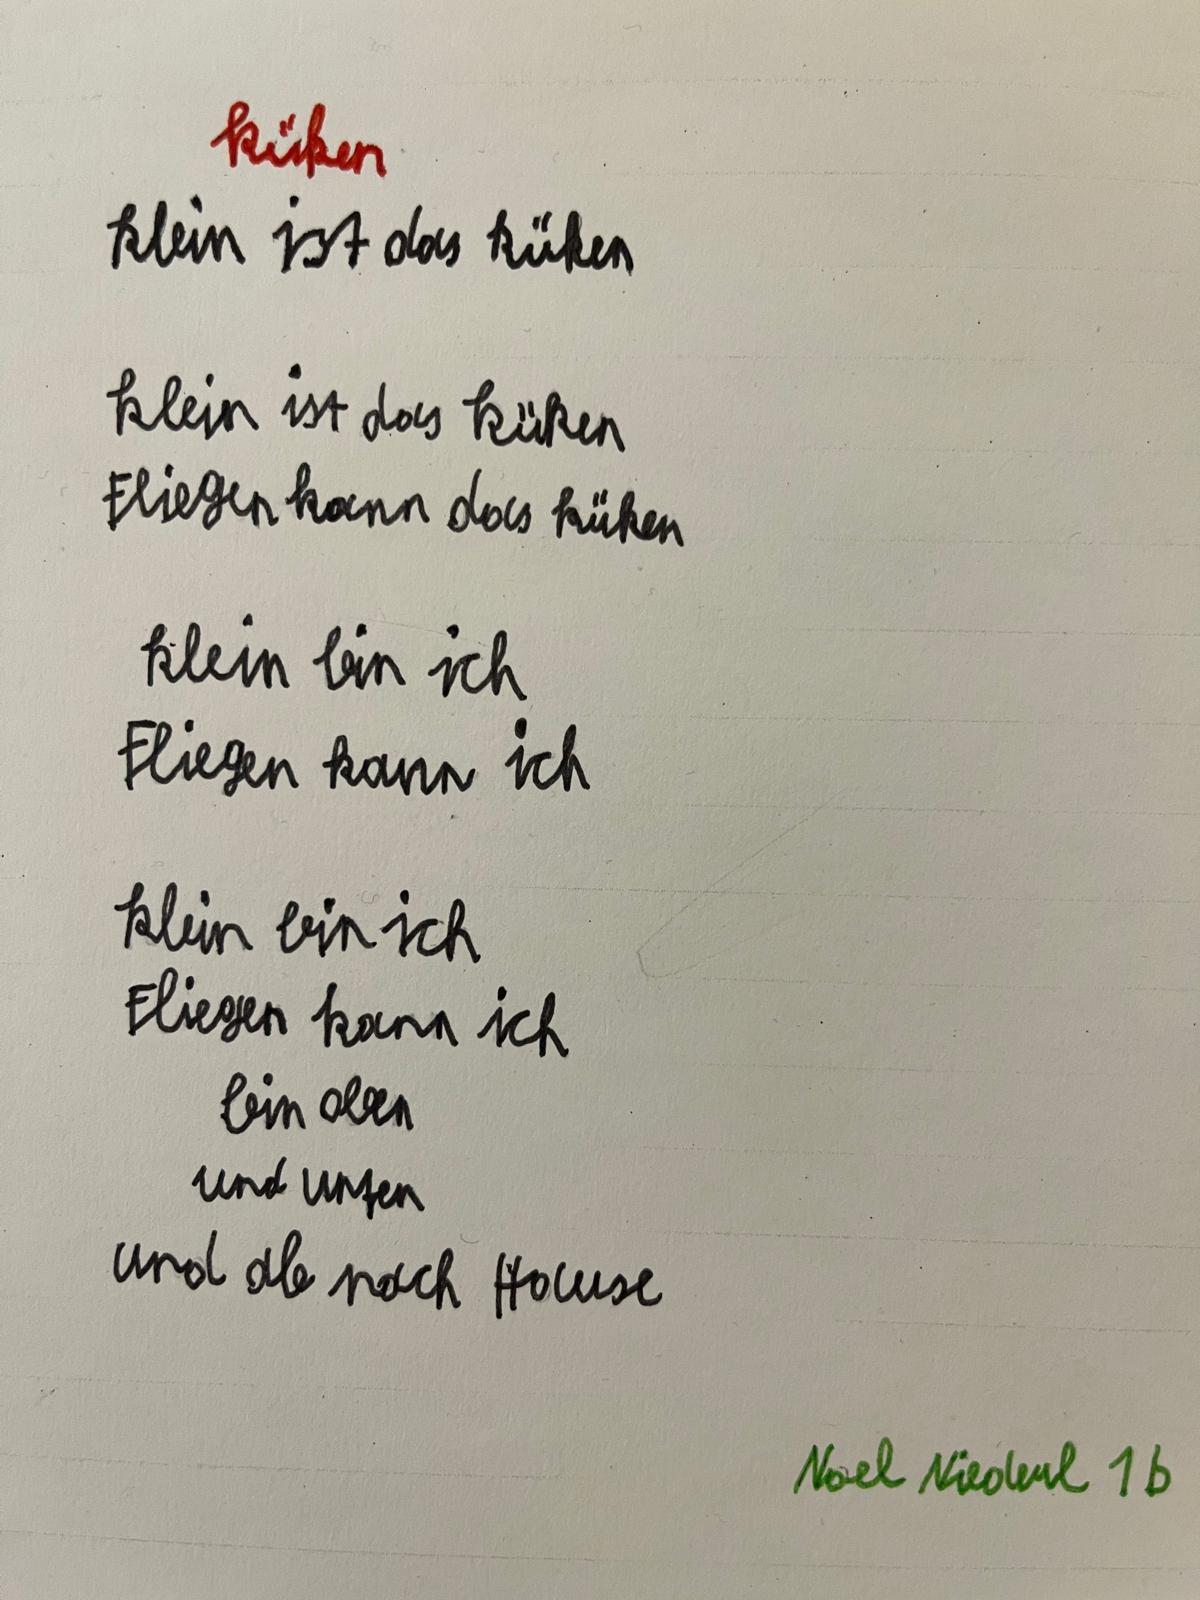 Küken
klein ist das küken
klein ist das küken
Fliegen kann das küken
klein bin ich
Fliegen kann ich
klein bin ich
Fliegen kann ich
bin oben
und unten
und ab nach Hause
Noel Niederl 1b